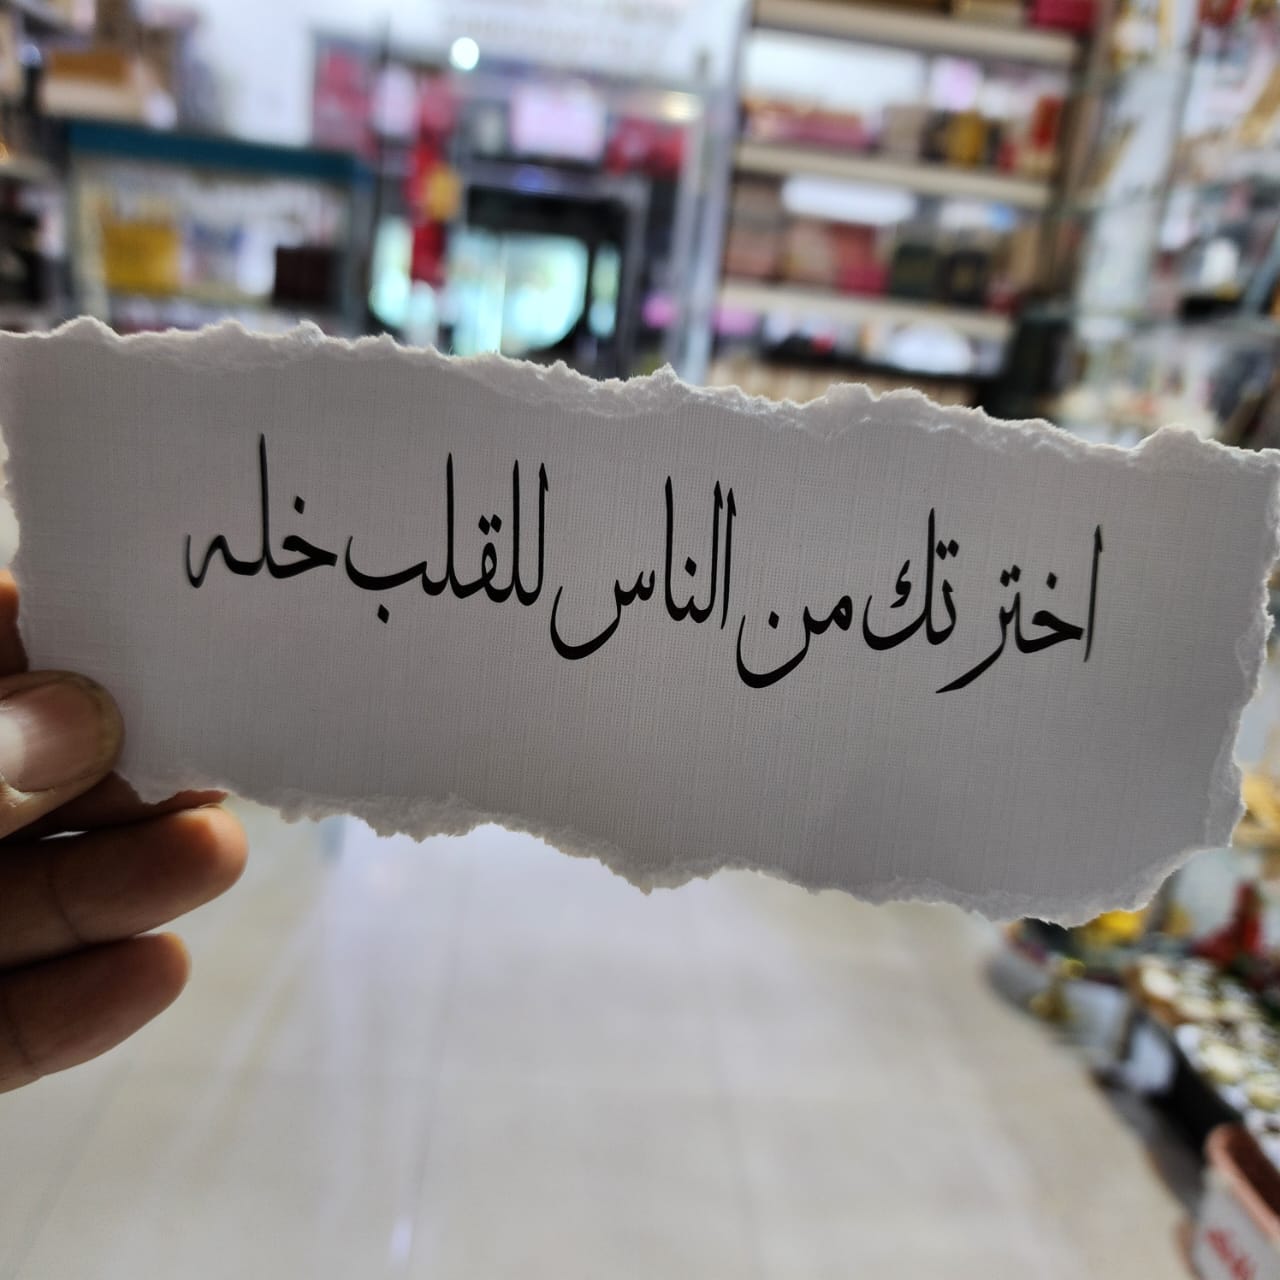 اخترتك من الناس للقلب خله